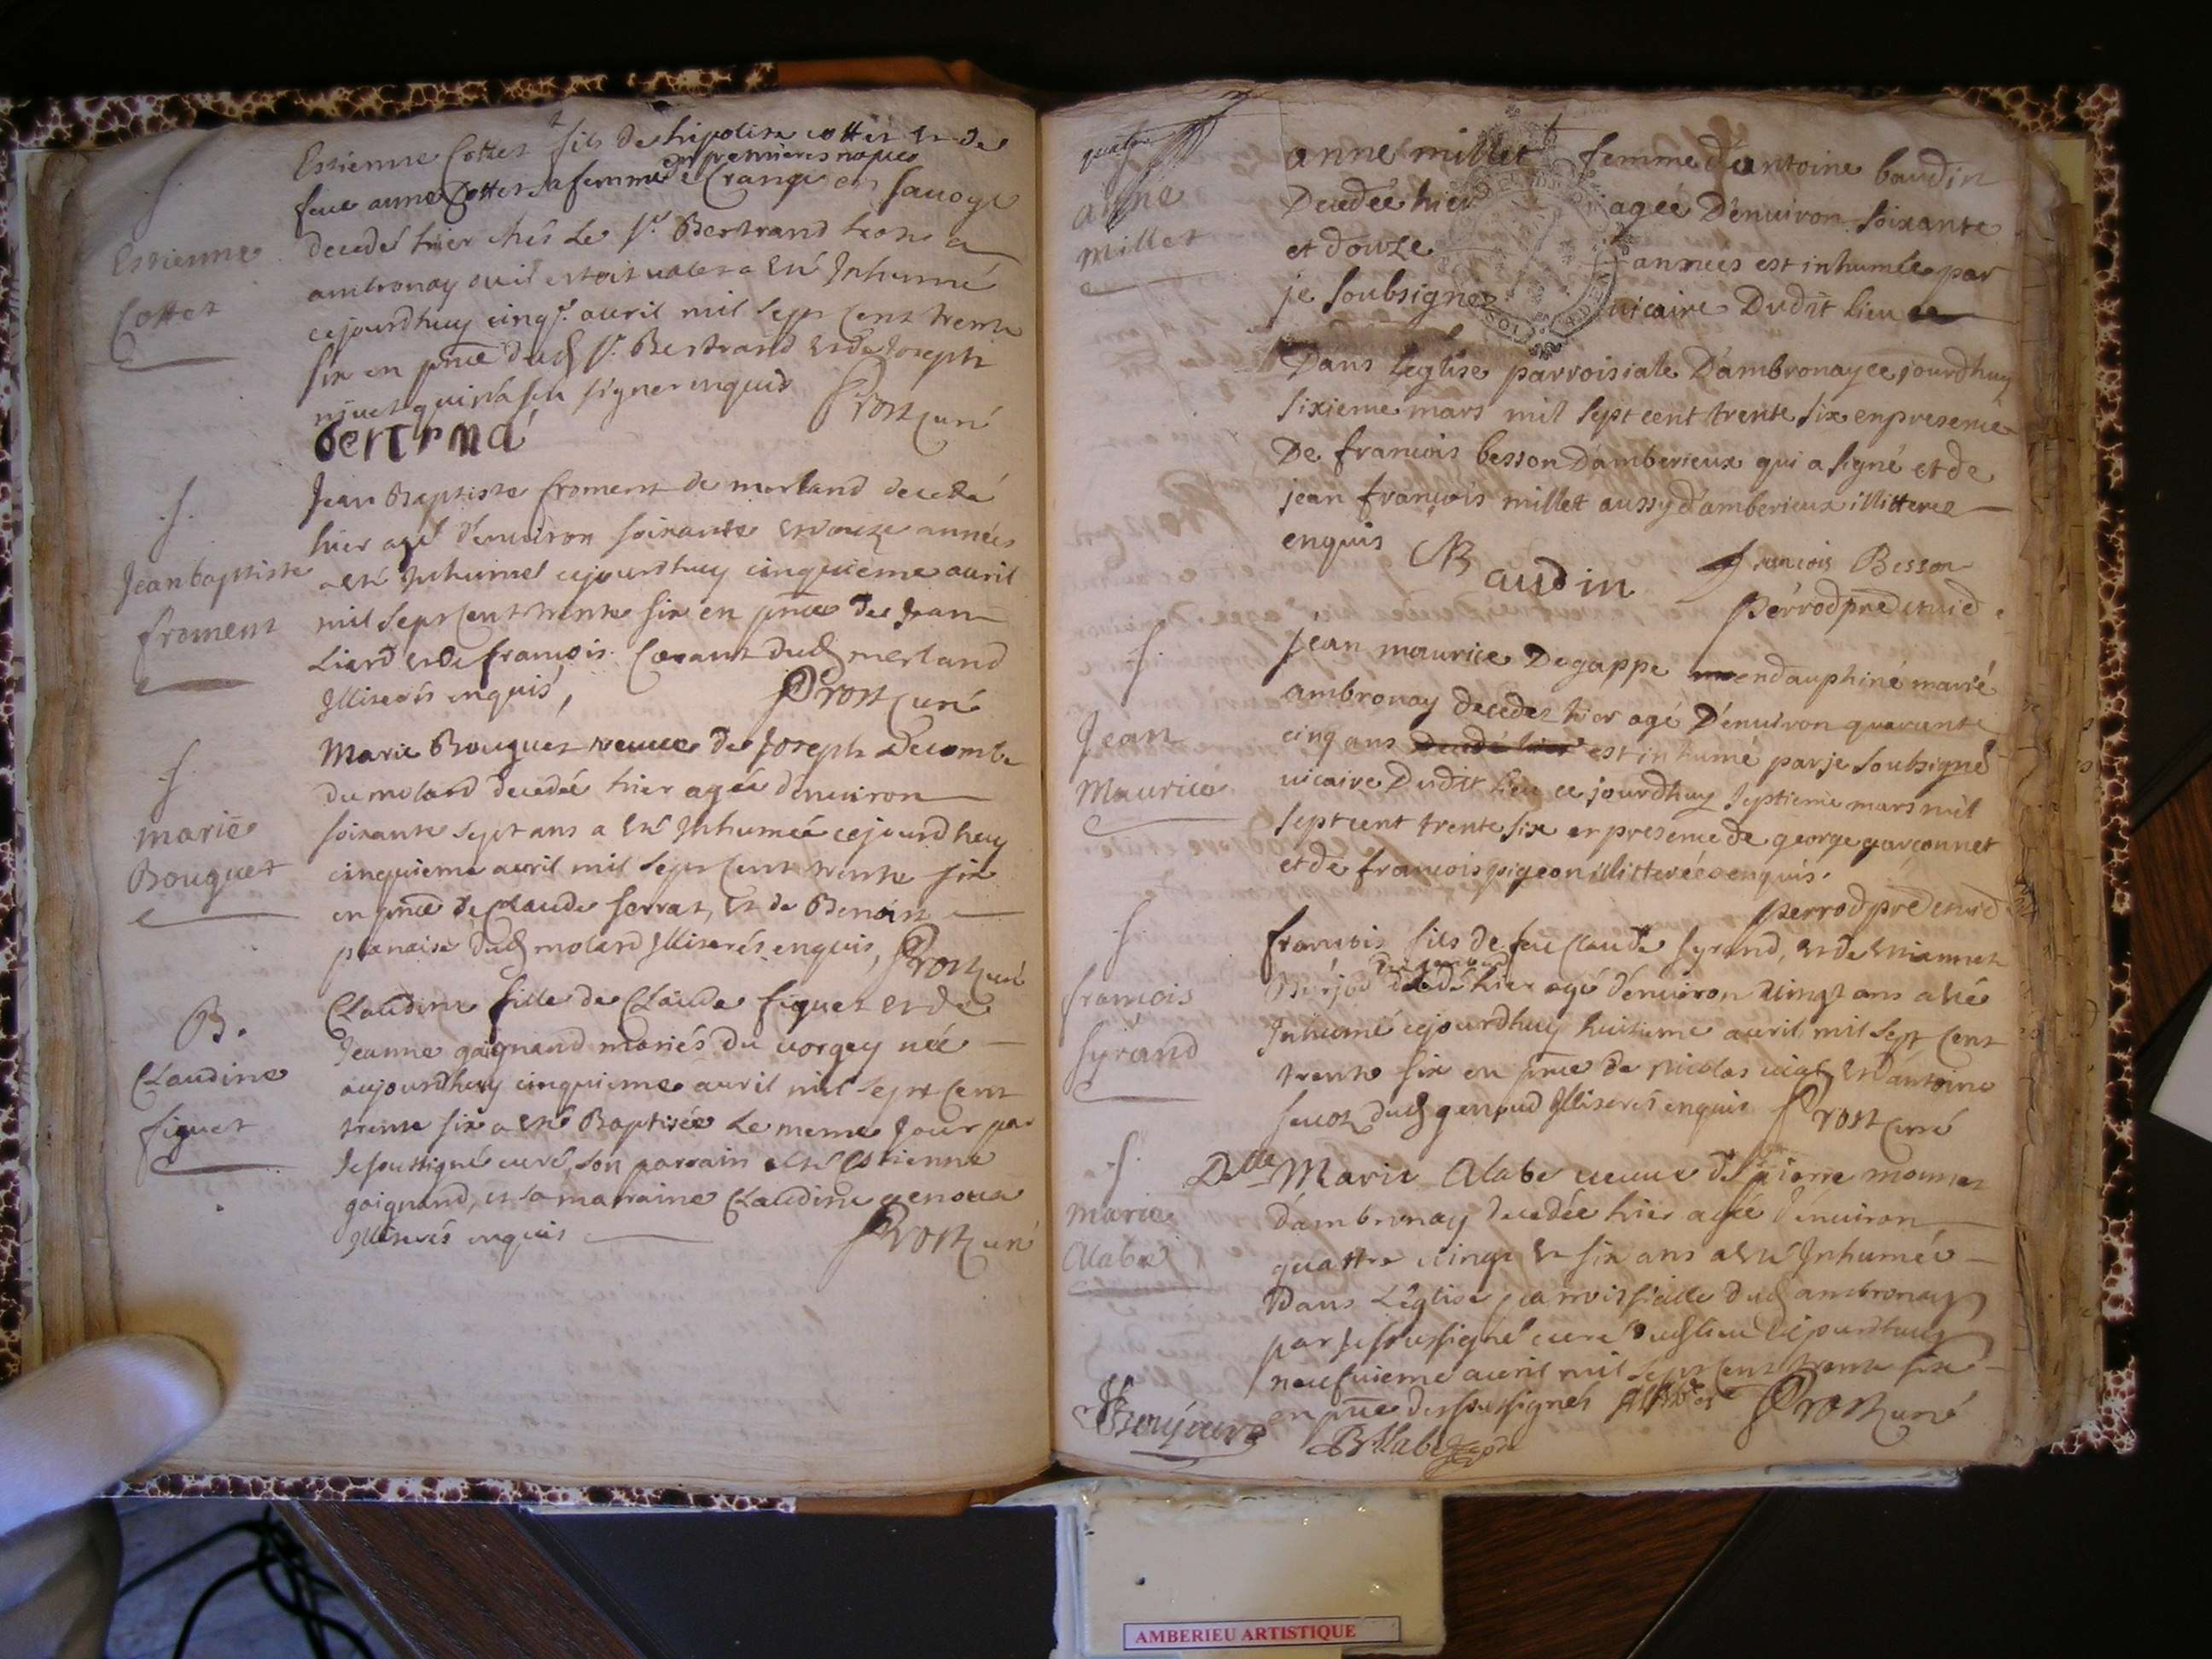 S.
Estienne
Cottet
Estienne Cottet fils de hipolite cottet et de
en premieres nopces
feue anne Cottet sa femme de Crange en Savoye
decedé hier chés Le Sr. Bertrand
ambronay ou il estoit valet a esté Inhumé
cejourdhuy cinqe. avril mil sept cent trente
six en pnce dud Sr. Bertrand et de Joseph
nivet qui n'a sceu signer enquis
Prost curé
bertrnd
S.
Jean baptiste
froment
Jean Baptiste froment de merland decedé
hier agé d'environ soixante et onze années
a esté Inhumé cejourdhuy cinquieme avril
mil sept cent trente six en pnce de Jean
Liard et de françois dud merland
Illiterés enquis,
Prost curé
S.
marie
Bouguet
Marie Bouguet veuve de Joseph Decombe
du molard decedée hier agée d'environ
soixante sept ans a esté Inhumée cejourdhuy
cinquieme avril mil sept cent trente six
en pnce de Claude serrat, et de Benoist
panaise dud molard Illiterés enquis,
Prost curé
B.
Claudine
figuet
Claudine fille de Claude figuet et de
Jeanne gaignand mariés du vorgey née
aujourdhuy cinquieme avril mil sept cent
trente six a esté Baptisée le meme Jour par
Je soussigné curé, son parrain a esté Estienne
gaignand, et sa marraine Claudine genoux
Illiterés enquis
Prost curé
quatre
anne
millet
anne millet femme d'antoine baudin
Decedée hier agée D'environ soixante
et douze années est inhumée par
je soubsigné vicaire Dudit lieu ce
Dans L'eglise parroisiale D'ambronay ce jourdhuy
sixieme mars mil sept cent trente six en presence
De francois besson D'amberieux qui a signé et de
jean françois millet aussy d'amberieux illitteré
enquis
Baudin
francois Besson
Perrod
S.
Jean
Maurice
jean maurice De gappe en dauphiné marié
ambronay decedez hier agé D'environ quarante
cinq ans Decedé hier est inhumé par je soubsigné
vicaire Dudit lieu ce jourdhuy septieme mars mil
sept cent trente six en presence de george garçonnet
et de francois pigeon illitterées enquis.
perrod
S.
francois
syrand
francois fils de feu Claude Syrand, et de Etiennet
du genoud
decedé hier agé d'environ vingt ans a été
Inhumé cejourdhuy huitieme avril mil sept cent
trente six en pnce de Nicolas et d'antoine
dud genoud Illiterés enquis
Prost curé
S.
marie
Alabe
Delle Marie Alabe veuve de Sr pierre monnet
d'ambronay decedée hier agée d'environ
quattre vingt et six ans a esté Inhumée
Dans L'église parroissialle dud ambronay
par Je soussigné curé dud lieu cejourdhuy
neufvieme avril mil sept cent trente six
en pnce des soussignés
Prost curé
AMBERIEU ARTISTIQUE